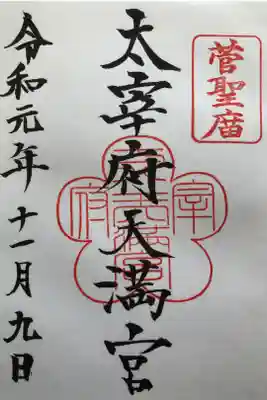 菅聖庿
太宰府天満宮
令和元年十一月九日